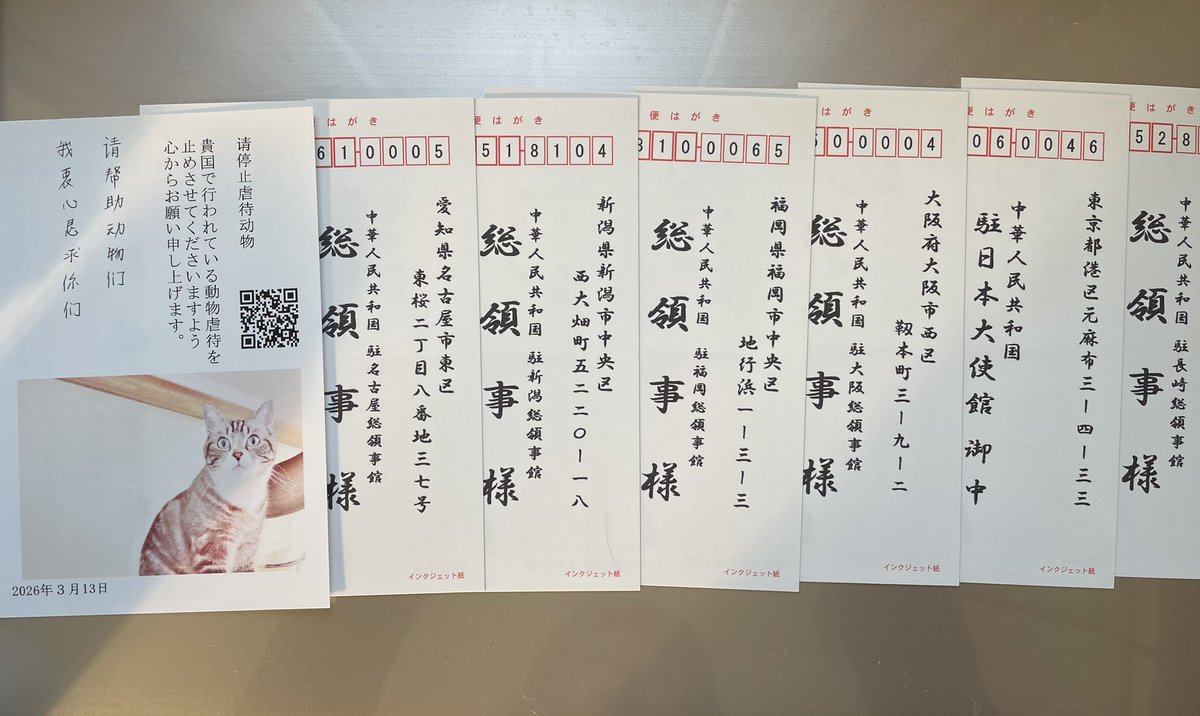 请停止虐待动物
貴国で行われている動物虐待を
止めさせてくださいますよう
心からお願い申し上げます。
请帮助动物们
我衷心恳求你们
2026年3月13日
便はがき
61-0005
愛知県名古屋市東区
東桜二丁目八番地三七号
中華人民共和国 駐名古屋総領事館
総領事様
インクジェット紙
便はがき
518104
新潟県新潟市中央区
西大畑町五二二〇ー一八
中華人民共和国 駐新潟総領事館
総領事様
インクジェット紙
便はがき
810-0065
福岡県福岡市中央区
地行浜一ー三ー三
中華人民共和国 駐福岡総領事館
総領事様
インクジェット紙
便はがき
50-0004
大阪府大阪市西区
靱本町三ー九ー二
中華人民共和国 駐大阪総領事館
総領事様
インクジェット紙
便はがき
060046
東京都港区元麻布三ー四ー三三
中華人民共和国
駐日本大使館 御中
インクジェット紙
便はがき
528
中華人民共和国 駐長崎総領事館
総領事様